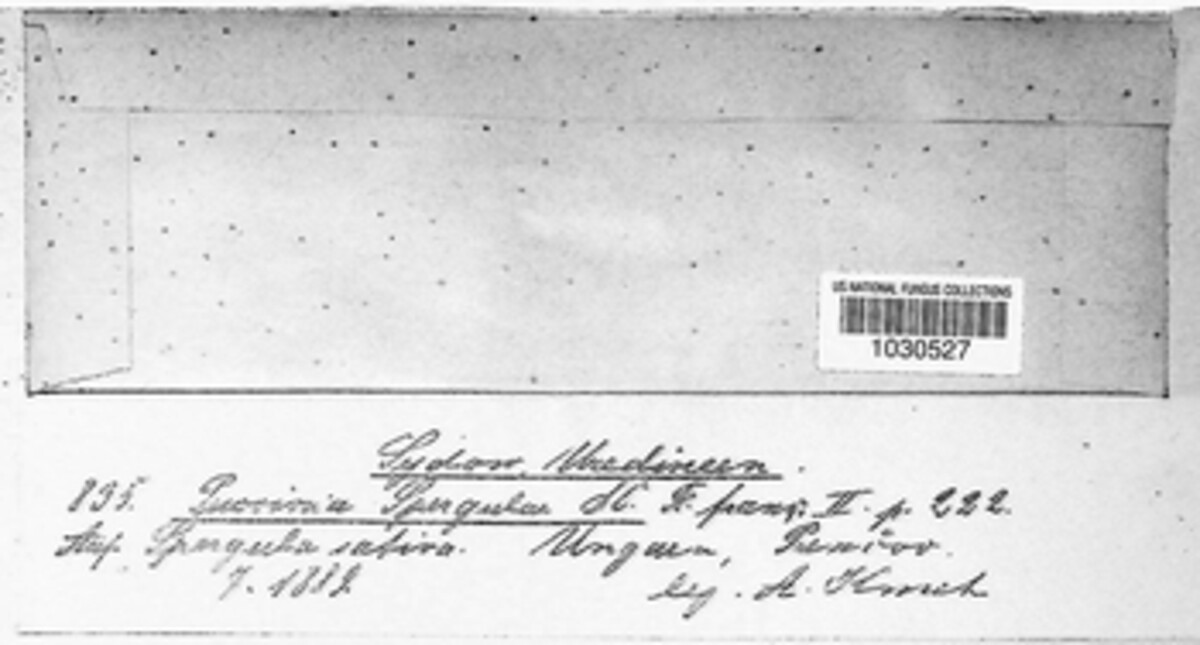 US NATIONAL FUNGUS COLLECTIONS
1030527
Sydow, Uredineen.
835. Puccinia Spergulae DC. Fl. franç. II. p. 222.
Auf Spergula sativa. Ungarn, Prenčow.
7. 1889 leg. A. Kmet